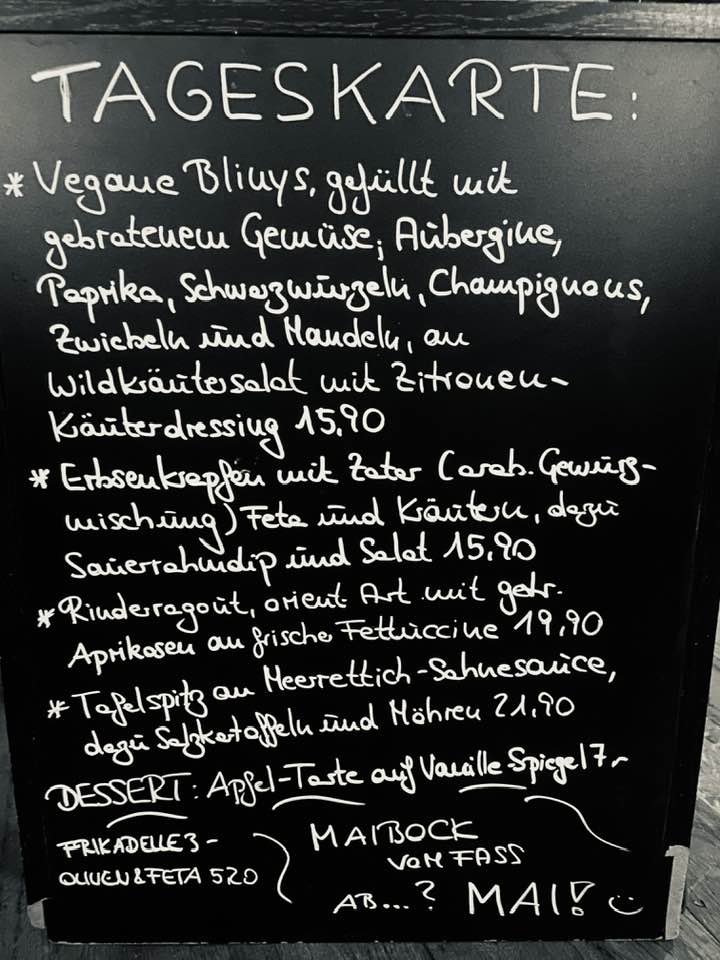 TAGESKARTE:
* Vegane Blinys, gefüllt mit
gebratenem Gemüse; Aubergine,
Paprika, Schwarzwurzeln, Champignons,
Zwiebeln und Mandeln, an
Wildkräutersalat mit Zitronen-
Kräuterdressing 15,90
* Erbsenkrapfen mit Zater (arab. Gewürz-
mischung) Feta und Kräutern, dazu
Sauerrahmdip und Salat 15,90
* Rinderragout, orient Art mit getr.
Aprikosen an frische Fettuccine 19,90
* Tafelspitz an Meerrettich-Sahnesauce,
dazu Salzkartoffeln und Möhren 21,90
DESSERT: Apfel-Tarte auf Vanille Spiegel 7,-
FRIKADELLE 3-
OLIVEN & FETA 520
MAIBOCK
VOM FASS
AB...? MAI! :)